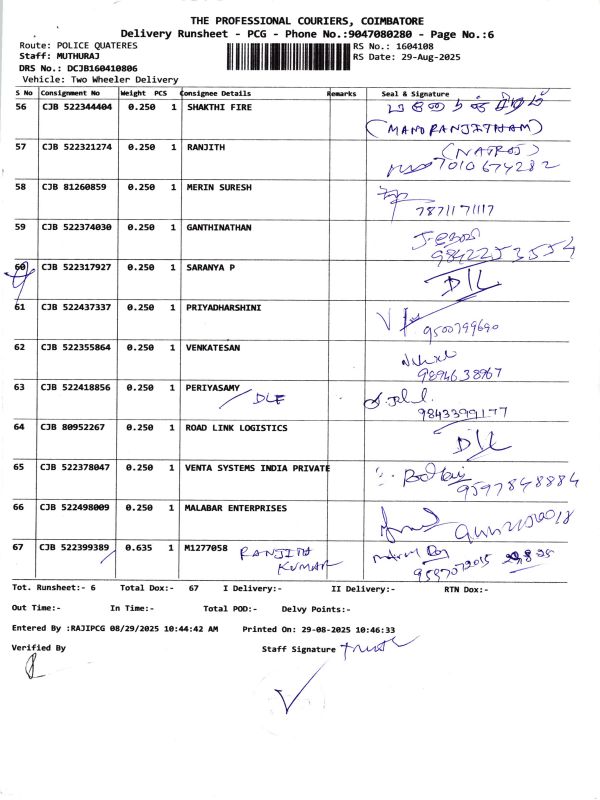 THE PROFESSIONAL COURIERS, COIMBATORE
Delivery Runsheet - PCG - Phone No.:9047080280 - Page No.:6
Route: POLICE QUATERES
RS No.: 1604108
Staff: MUTHURAJ
RS Date: 29-Aug-2025
DRS No.: DCJB160410806
Vehicle: Two Wheeler Delivery
S No Consignment No Weight PCS Consignee Details Remarks Seal & Signature
56 CJB 522344404 0.250 1 SHAKTHI FIRE
(MANORANJITHAM)
57 CJB 522321274 0.250 1 RANJITH (NATRAJ)
7010674282
58 CJB 81260859 0.250 1 MERIN SURESH
7871171117
59 CJB 522374030 0.250 1 GANTHINATHAN
9842253554
60 CJB 522317927 0.250 1 SARANYA P D/L
61 CJB 522437337 0.250 1 PRIYADHARSHINI
9500799690
62 CJB 522355864 0.250 1 VENKATESAN
9894638967
63 CJB 522418856 0.250 1 PERIYASAMY
DLF
9843399177
64 CJB 80952267 0.250 1 ROAD LINK LOGISTICS D/L
65 CJB 522378047 0.250 1 VENTA SYSTEMS INDIA PRIVATE
9597848884
66 CJB 522498009 0.250 1 MALABAR ENTERPRISES
67 CJB 522399389 0.635 1 M1277058 RANJITH
KUMAR
Tot. Runsheet:- 6 Total Dox:- 67 I Delivery:- II Delivery:- RTN Dox:-
Out Time:- In Time:- Total POD:- Delvy Points:-
Entered By :RAJIPCG 08/29/2025 10:44:42 AM Printed On: 29-08-2025 10:46:33
Verified By Staff Signature